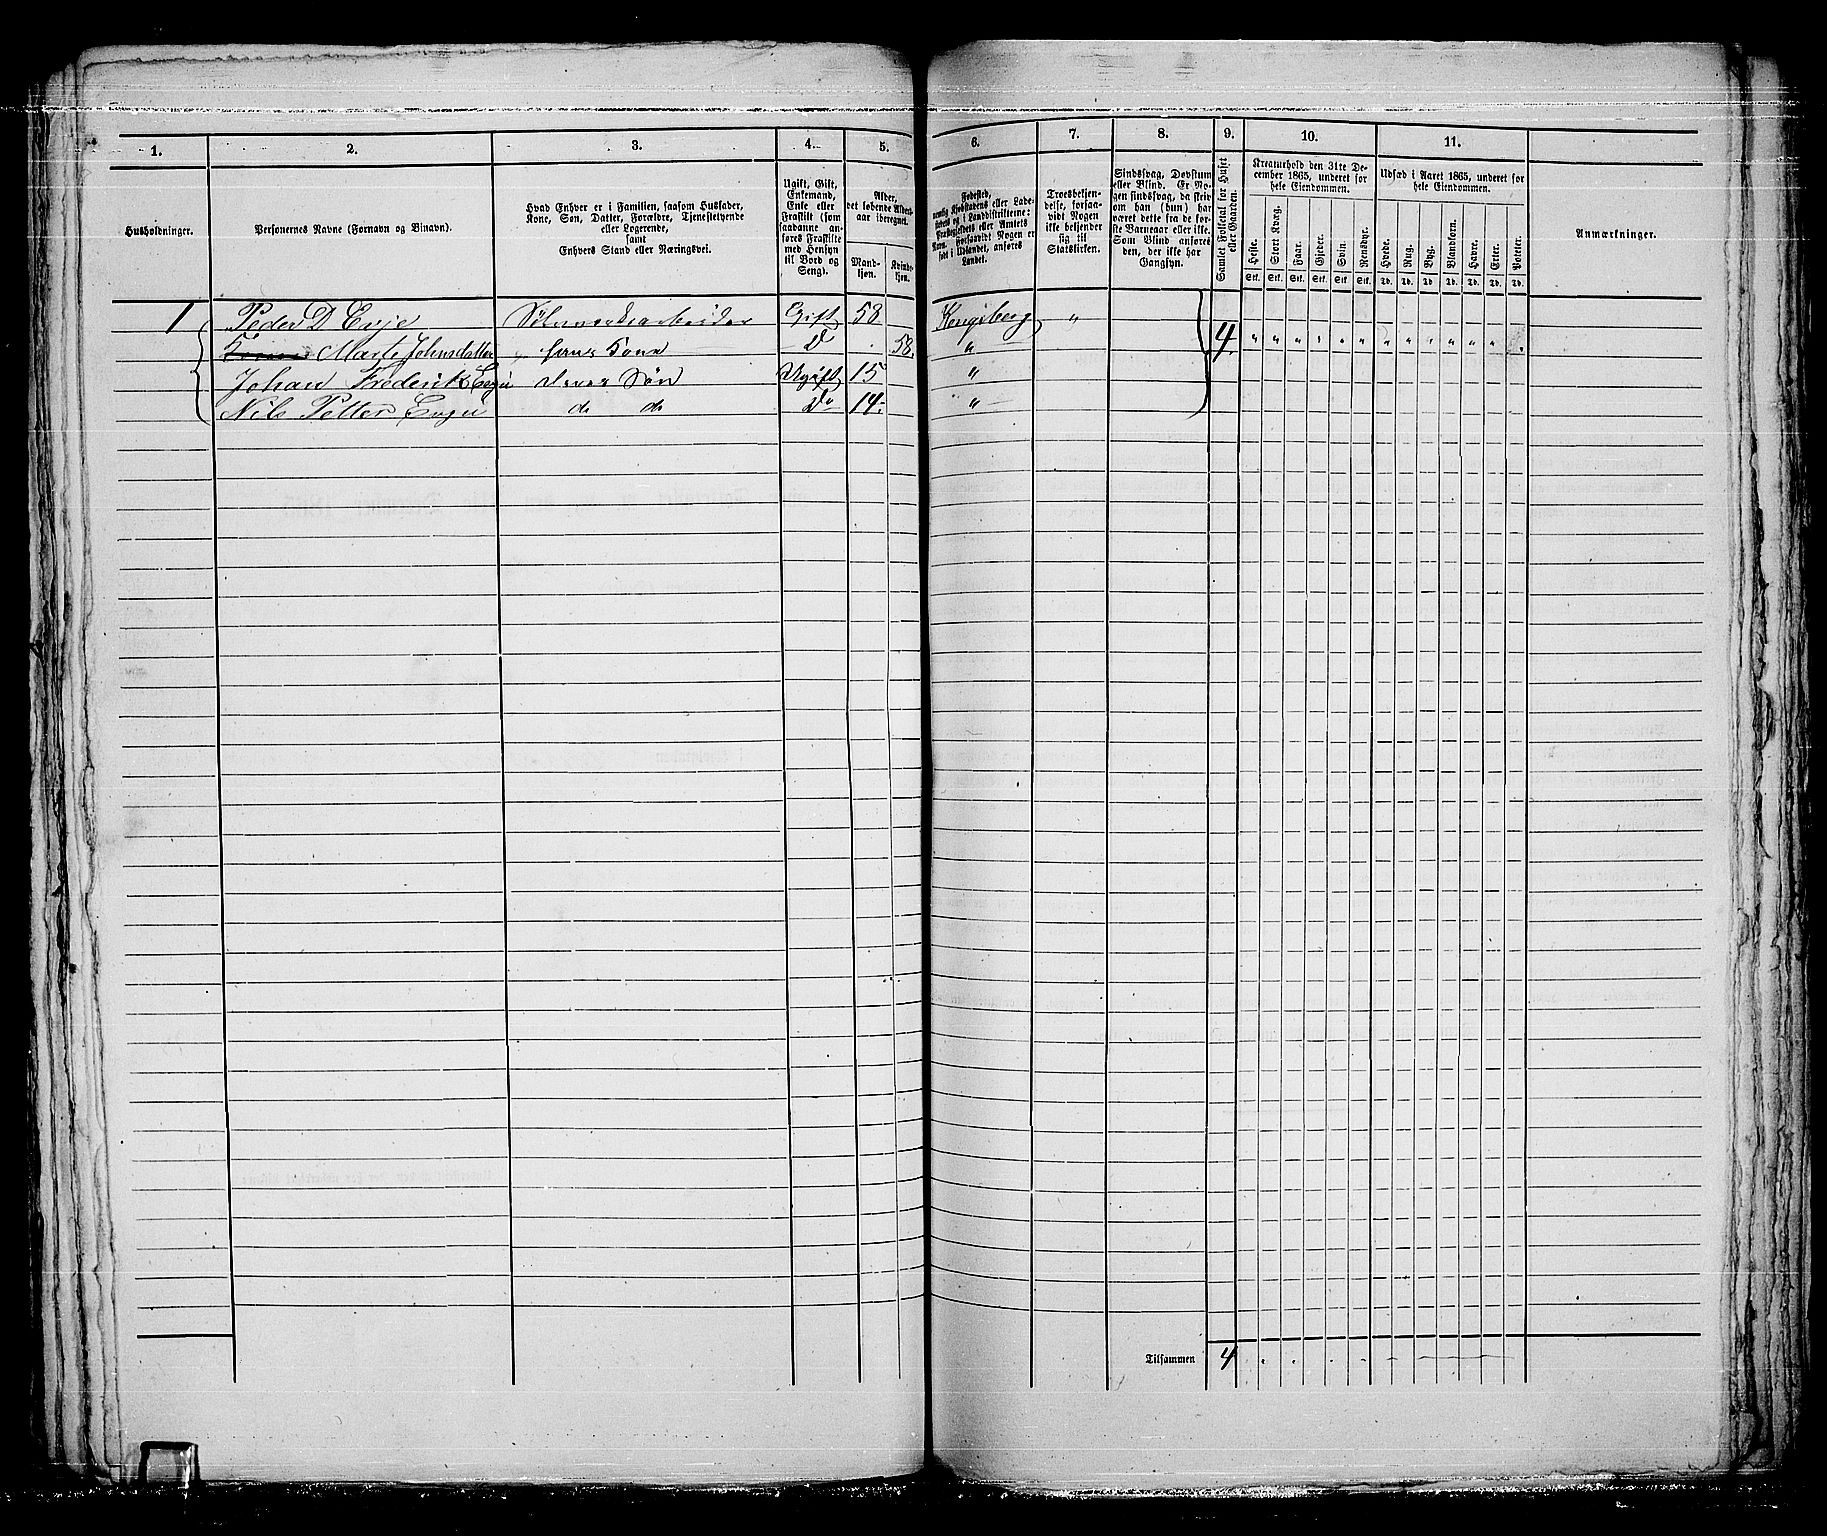 1. 2. 3. 4. 5. 6. 7. 8. 9. 10. 11.
Husholdninger.
Personernes Navne (Fornavn og Binavn).
Hvad Enhver er i Familien, saasom Husfader,
Kone, Søn, Datter, Forældre, Tjenestetyende
eller Logerende,
samt
Enhvers Stand eller Næringsvei.
Ugift, Gift,
Enkemand,
Enke eller
Fraskilt (som
saadanne an-
føres Fraskilte
med Hensyn
til Bord og
Seng).
Alder,
det løbende Alders-
aar iberegnet.
Mand-
kjøn.
Kvinde-
kjøn.
Fødested,
nemlig Kjøbstadens eller Lade-
stedets og i Landdistrikterne:
Præstegjeldets eller Amtets
Navn. Forsaavidt Nogen er
født i Udlandet, anføres
Landet.
Troesbekjen-
delse, forsaa-
vidt Nogen
ikke bekjender
sig til
Statskirken.
Sindssvag, Døvstum
eller Blind. Er No-
gen sindssvag, da skriv
om han (hun) har
været dette fra de før-
ste Barneaar eller ikke.
Som Blind anføres
den, der ikke har
Gangsyn.
Samlet Folketal for Huset
eller Gaarden.
Kreaturhold den 31te De-
cember 1865, underet for
hele Eiendommen.
Heste. Stort Kvæg. Faar. Gjeder. Svin. Rensdyr.
Stk. Stk. Stk. Stk. Stk. Stk.
Udsæd i Aaret 1865, underet for
hele Eiendommen.
Hvede. Rug. Byg. Blandkorn. Havre. Erter. Poteter.
Td. Td. Td. Td. Td. Td. Td.
Anmærkninger.
1 Peder D Evje Sølvverksarbeider Gift 58 Kongsberg " 4
Marte Johnsdatter hans Kone Do 58. "
Johan Frederik Deres Søn Ugift 15 "
Nils Petter do do Do 14. "
Tilsammen 4